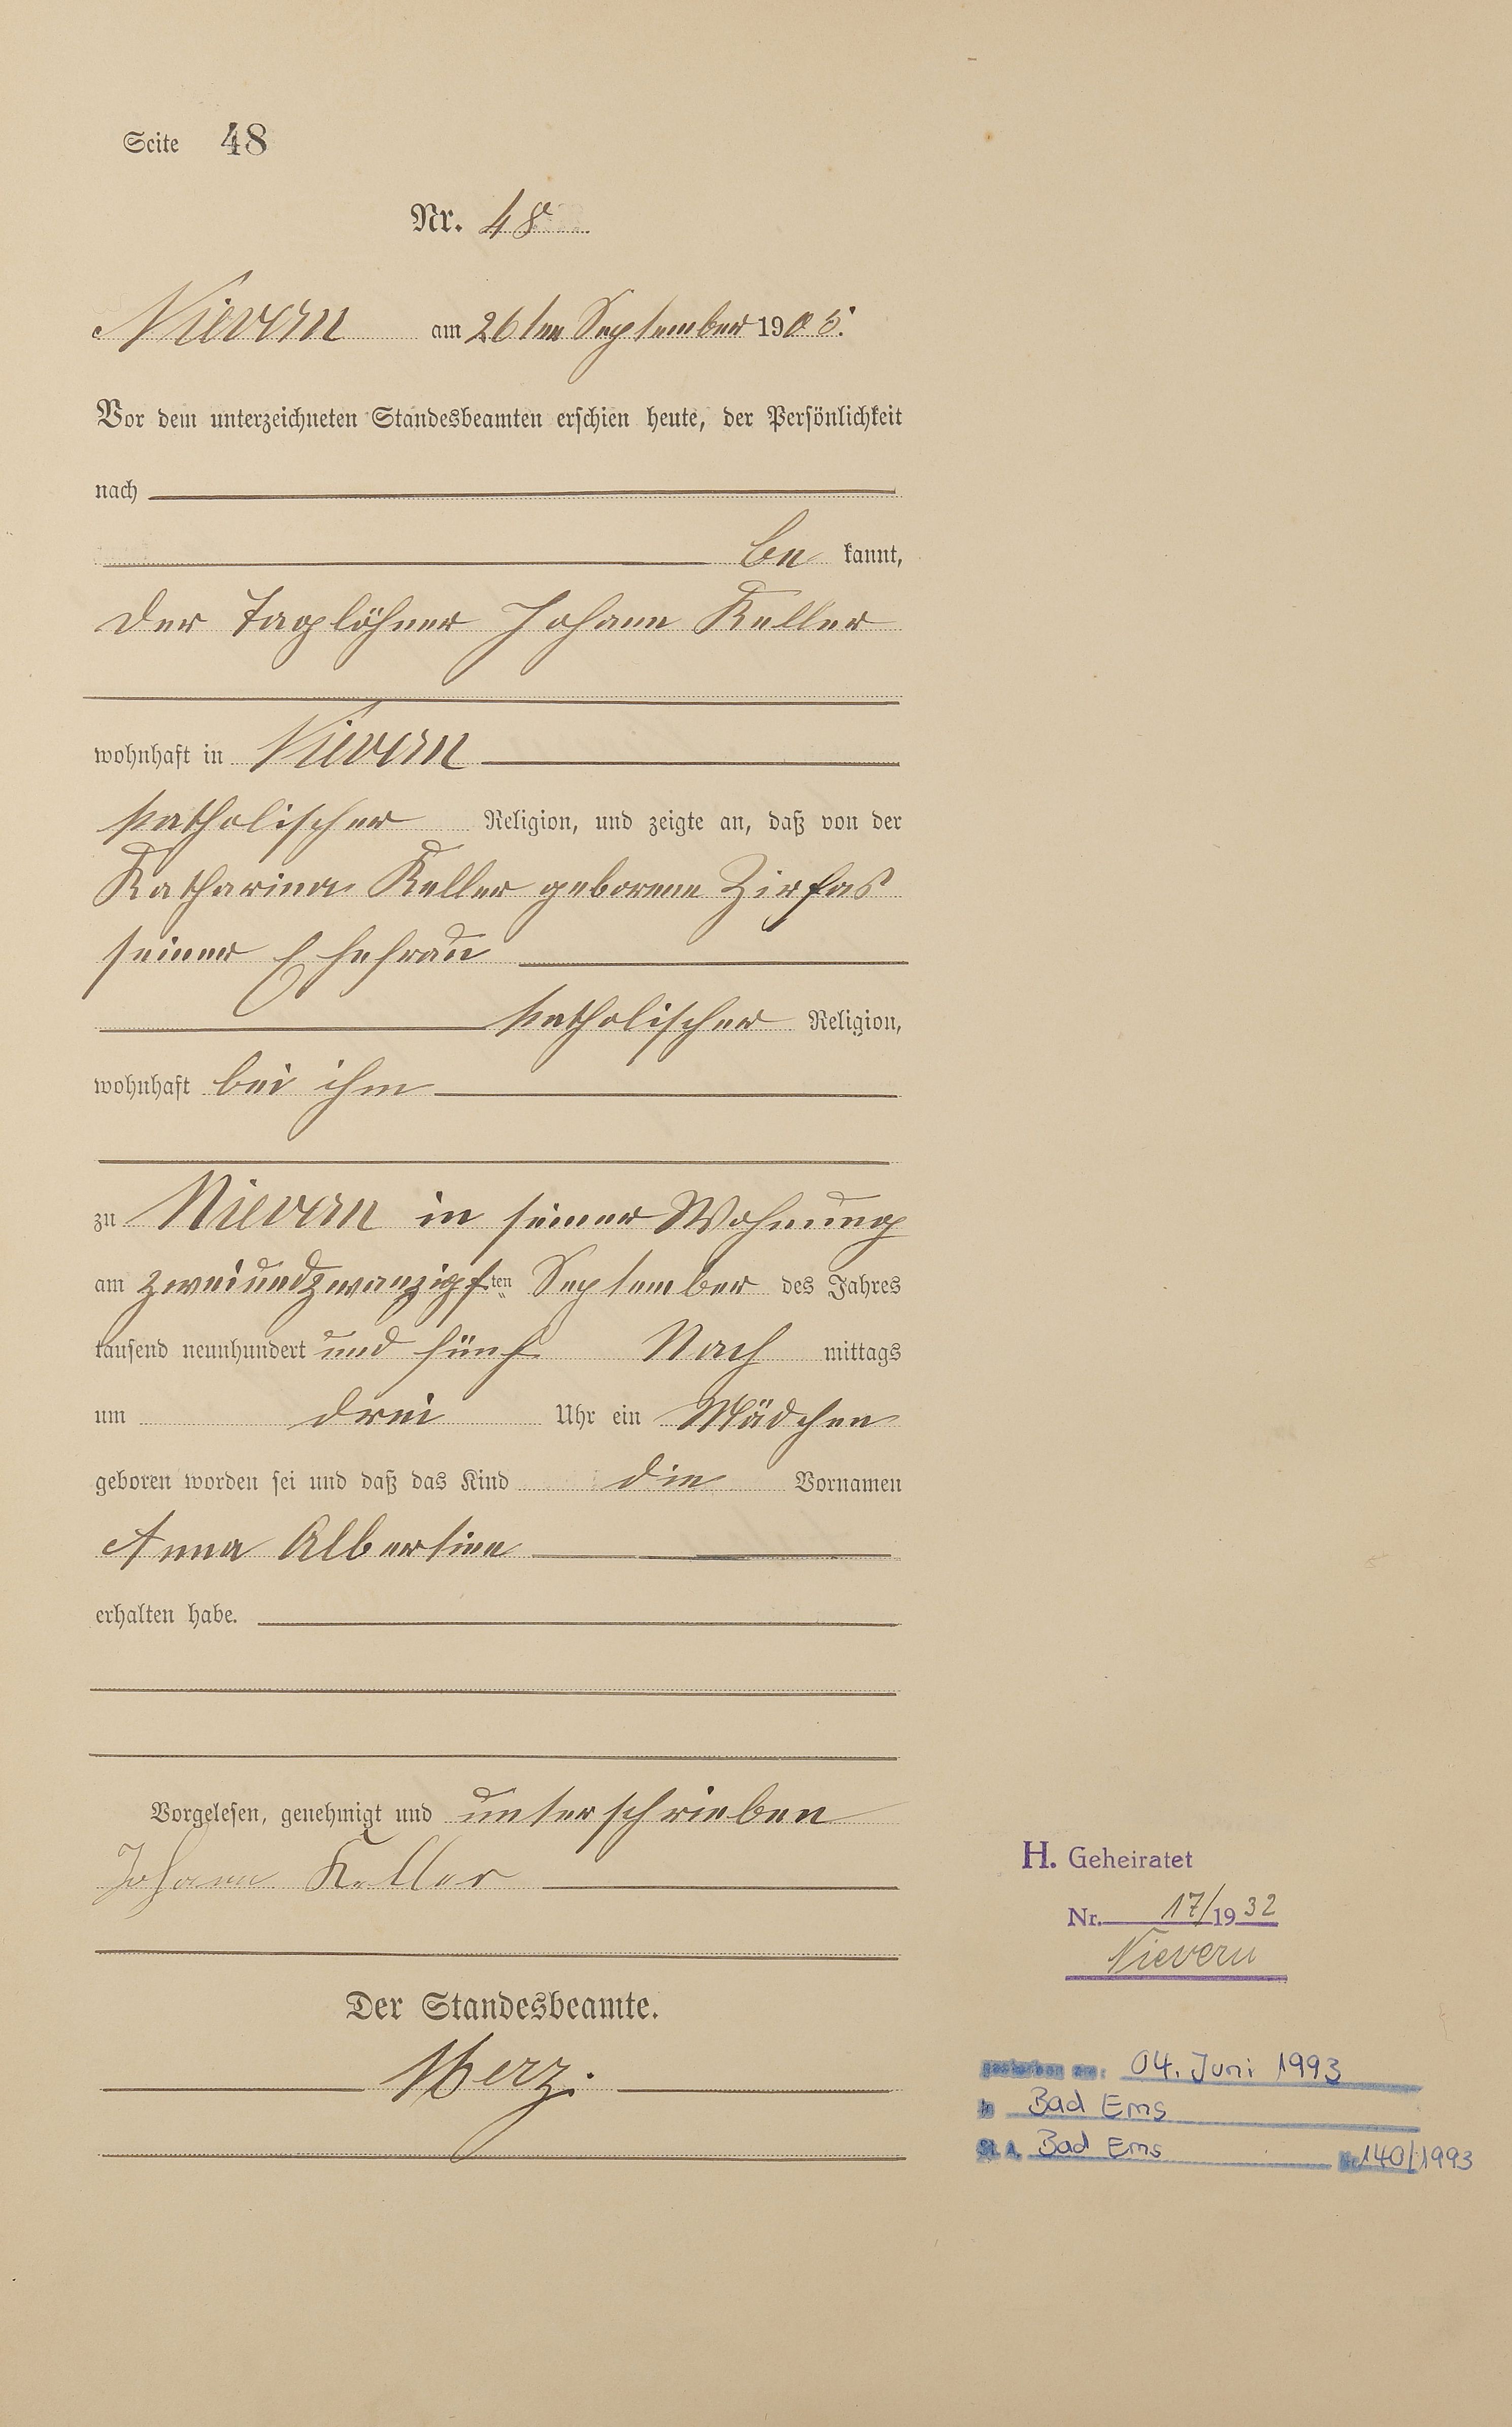 Seite 48
Nr. 48
Nievern am 26ten September 1905.
Vor dem unterzeichneten Standesbeamten erschien heute, der Persönlichkeit
nach
be kannt,
der Taglöhner Johann Keller
wohnhaft in Nievern
katholischer Religion, und zeigte an, daß von der
Katharina Keller geborene Zirfas
seiner Ehefrau
katholischer Religion,
wohnhaft bei ihm
zu Nievern in seiner Wohnung
am zweiundzwanzigsten September des Jahres
tausend neunhundert und fünf Nach mittags
um drei Uhr ein Mädchen
geboren worden sei und daß das Kind die Vornamen
Anna Albertine
erhalten habe.
Vorgelesen, genehmigt und unterschrieben
Johann Keller
Der Standesbeamte.
Merz.
H. Geheiratet
Nr. 17/1932
Nievern
gestorben am: 04. Juni 1993
in Bad Ems
St. A. Bad Ems Nr. 140/1993